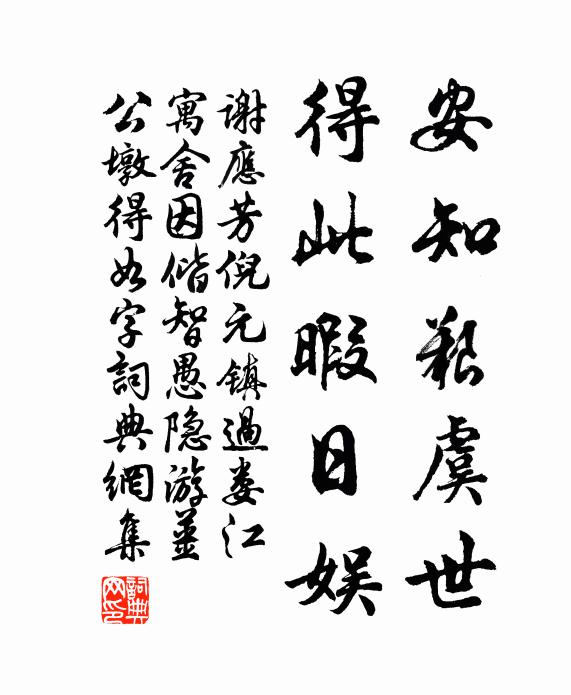 安知艱虞世
得此暇日娛
謝應芳倪元鎮過婁江
寓舍因偕智愚隐游薑
公墩得如字詞典網集
詞典
网印